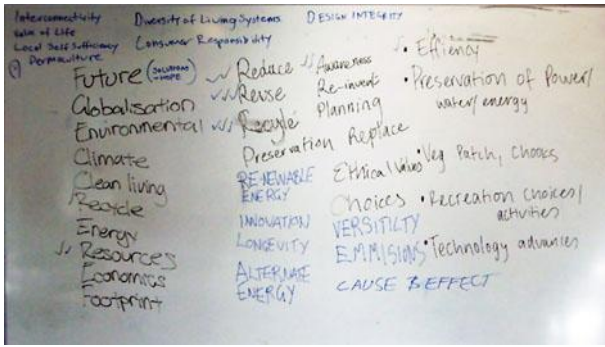 Interconnectivity Diversity of Living Systems DESIGN INTEGRITY
Value of Life
Local Self Sufficiency Consumer Responsibility
Permaculture
Future (SOLUTIONS HOPE
Globalisation
Environmental
Climate
Clean living
Recycle
Energy
Resources
Economics
Footprint
Reduce
Reuse
Recycle
Preservation Replace
RENEWABLE
ENERGY
INNOVATION
LONGEVITY
ALTERNATE
ENERGY
Awareness
Re-invent
Planning
Ethical Values
Choices
VERSITILTY
EMMISIONS
CAUSE & EFFECT
• Effiency
• Preservation of Power/
water/energy
• Veg Patch, Chooks
• Recreation Choices/
activities
• Technology advances